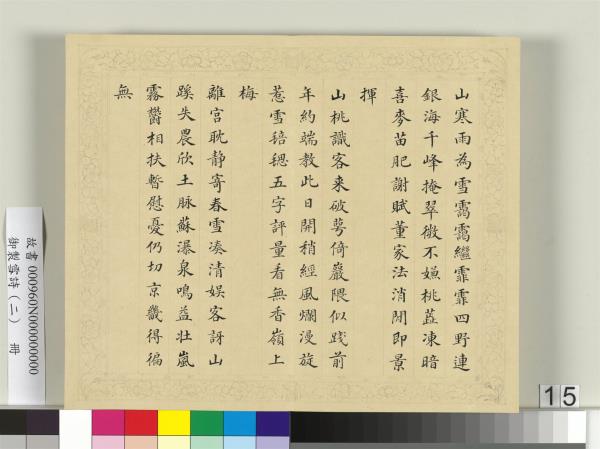 山寒雨為雪靄靄繼霏霏四野連
銀海千峰掩翠微不嫌桃蕋凍暗
喜麥苗肥謝賦董家法消閒即景
揮
山桃識客來破萼倚巖隈似踐前
年約端教此日開稍經風爛漫旋
惹雪𤨏毸五字評量看無香嶺上
梅
離宮耽静寄春雪湊清娛客訝山
蹊失農欣土脉蘇瀑泉鳴益壯嵐
霧鬱相扶暫慰憂仍切京畿得徧
無
故書 000960N000000000
御製雪詩（二） 冊
15